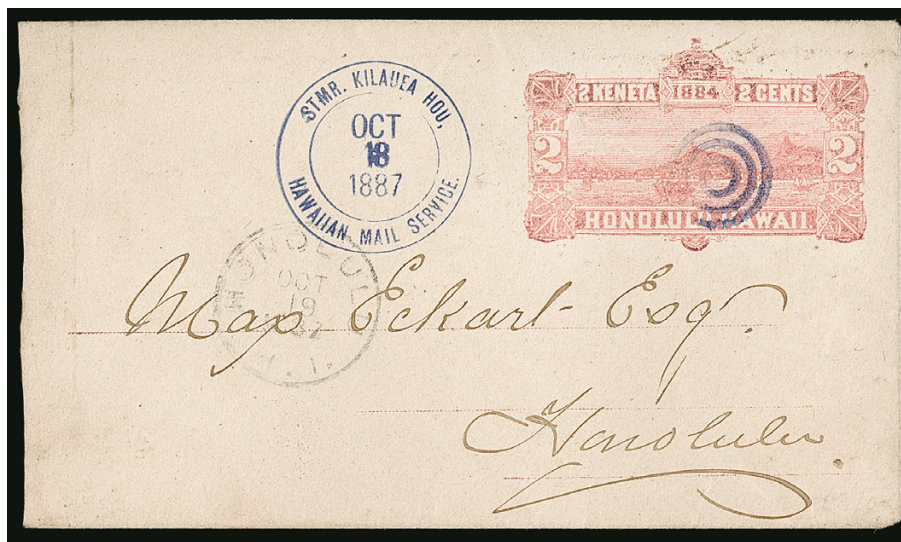 STMR. KILAUEA HOU,
OCT
18
1887
HAWAIIAN MAIL SERVICE.
2 KENETA 1884 2 CENTS
2 2
HONOLULU HAWAII
HONOLULU
OCT
19
87
H. I.
Max Eckart Esq.
Honolulu.